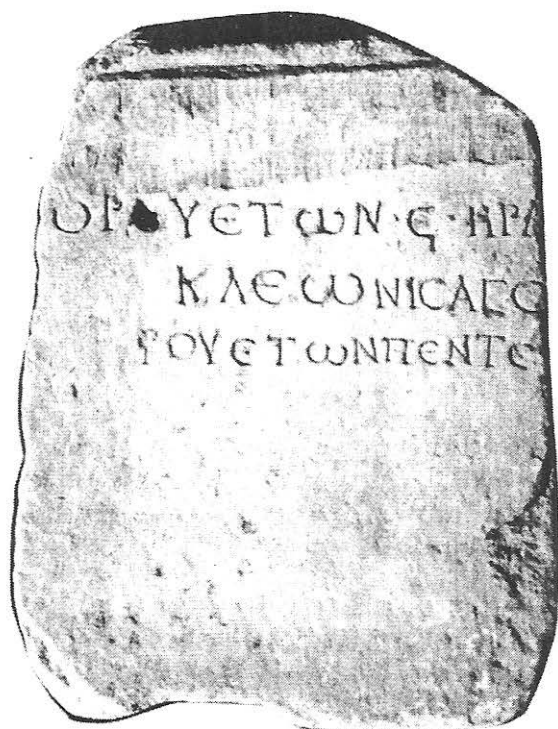 ΩΡΟΥΕΤΩΝ·Ϛ·ΗΡΑ
ΚΛΕΩΝΙCΑΓΟ
ΡΟΥΕΤΩΝΠΕΝΤΕ